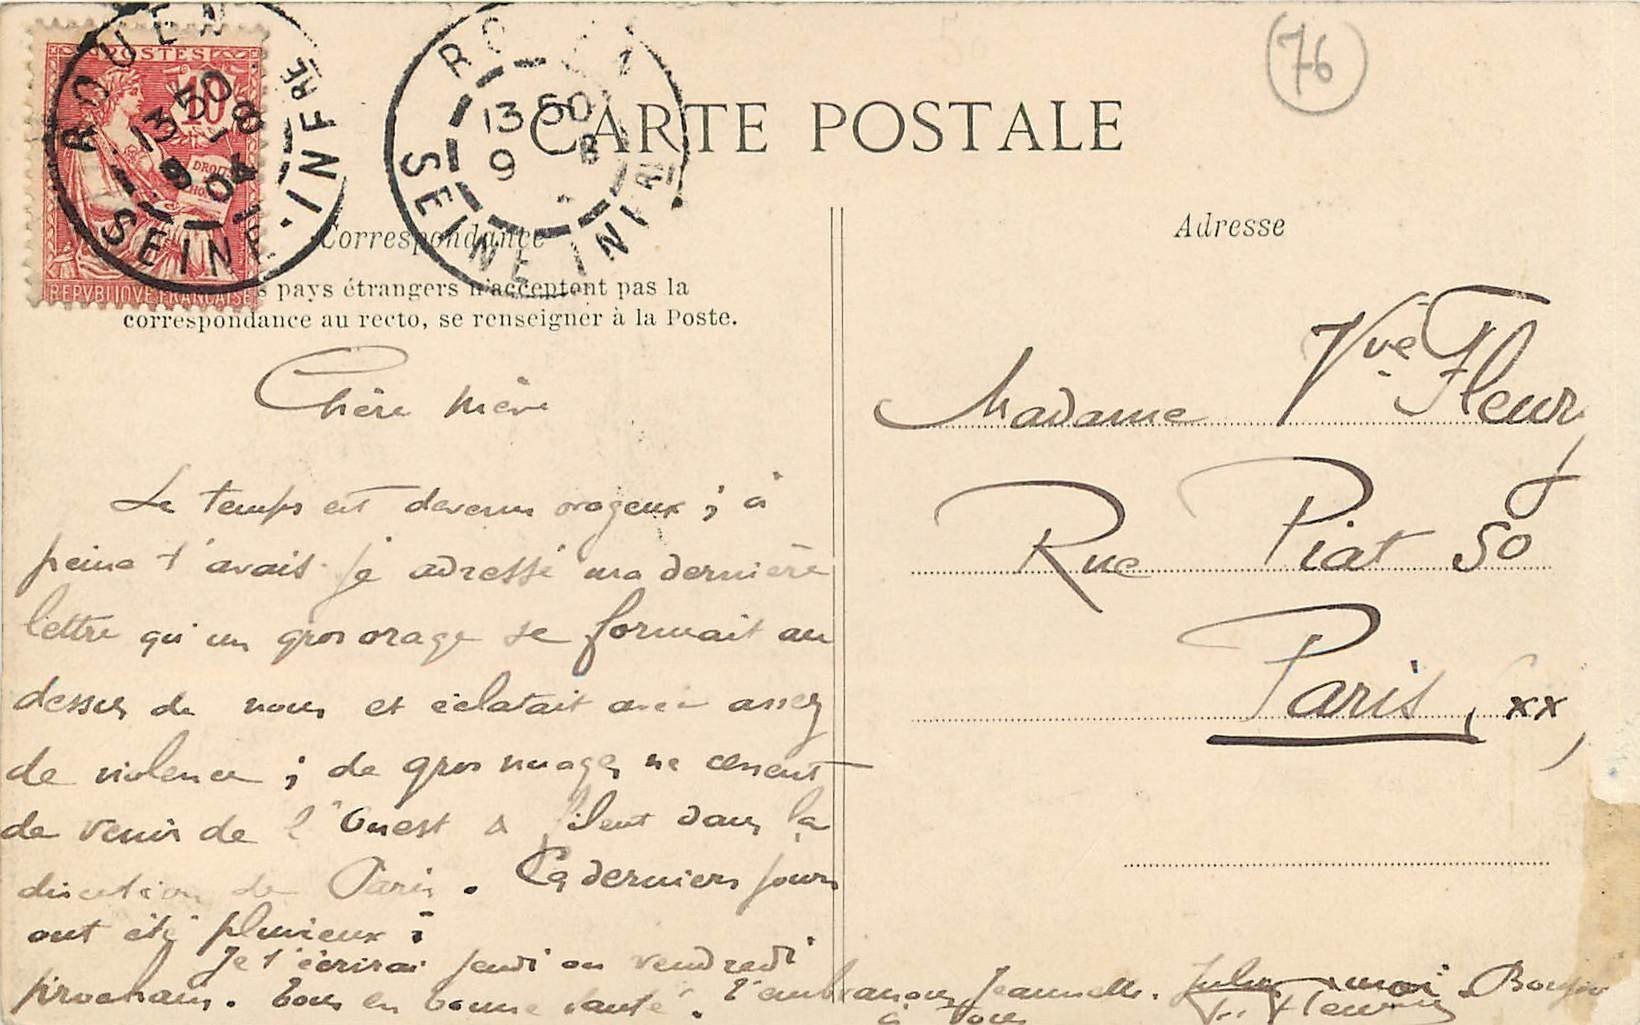 POSTES
10
DROITS
REPVBLIQVE FRANÇAISE
ROUEN
13 50
9 -8
04
SEINE-INFRE
ROUEN
13 50
9 8
SEINE INFRE
76
CARTE POSTALE
Correspondance
pays étrangers n'acceptent pas la
correspondance au recto, se renseigner à la Poste.
Chère Mère
Le temps est devenu orageux ; à
peine t'avais-je adressé ma dernière
lettre qu'un gros orage se formait au
dessus de nous et éclatait avec assez
de violence ; de gros nuages ne cessent
de venir de l'Ouest & filent dans la
direction de Paris. Ces derniers jours
ont été pluvieux ;
Je t'écrirai jeudi ou vendredi
prochain. Tous en bonne santé. T'embrassons, Jeannelle, Jules, moi. Bonjour
à tous
Fleury
Adresse
Madame Vve Fleury
Rue Piat 50
Paris (XX)